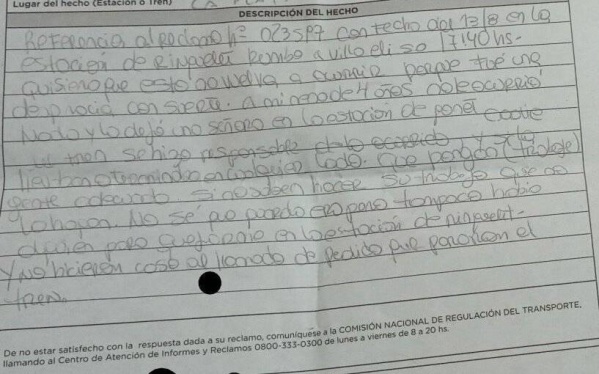 Lugar del hecho (Estación o Tren)
DESCRIPCIÓN DEL HECHO
Referencia al reclamo nº 023597 con fecha del 13/8 en la
estación de Ringuelet Rumbo a villa elisa 17:40hs-
quisiera que esto no vuelva a ocurrir porque fué una
desgracia con suerte. a mi nena de 4 años no le ocurrió
Nada y la dejó una señora en la estación de
tren se hizo responsable de lo ocurrido y
en cualquier lado. Que pongan (trabaje)
gente adecuada. Si no saben hacer su trabajo que no
lo hagan. No sé puede tampoco había
alguien para quejarme en la estación de ringuelet-
Y no hicieron caso al llamado de pedido que pararan el
tren.
De no estar satisfecho con la respuesta dada a su reclamo, comuníquese a la COMISIÓN NACIONAL DE REGULACIÓN DEL TRANSPORTE,
llamando al Centro de Atención de Informes y Reclamos 0800-333-0300 de lunes a viernes de 8 a 20 hs.